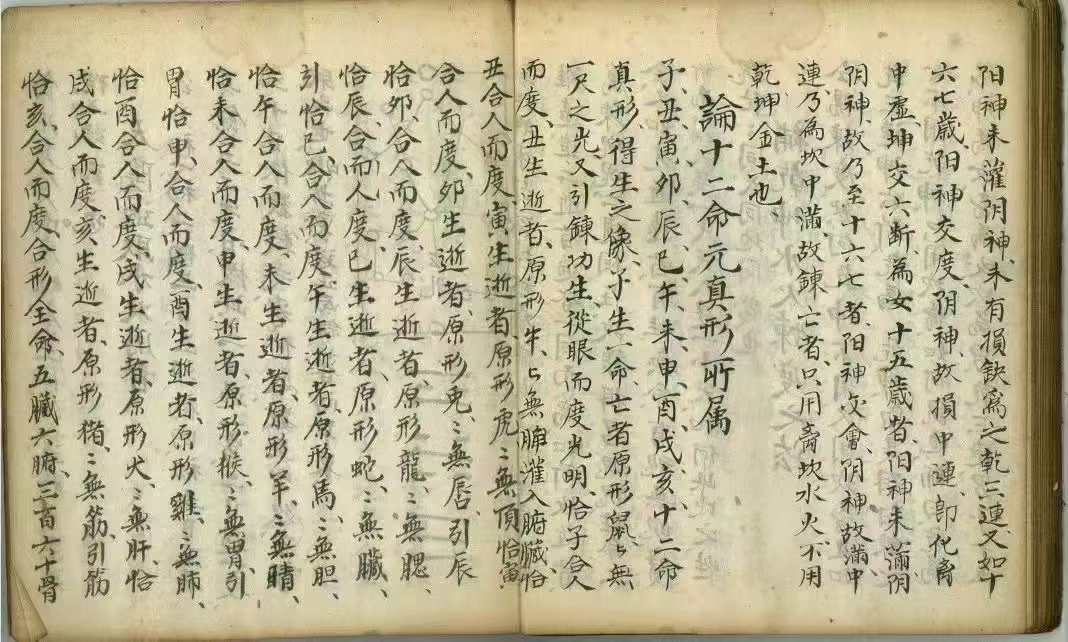 阳神未灌阴神、未有損缺爲之乾三連、又如十
六七歲阳神交度、阴神、故損中連、即化离
中虛、坤交六断、為女十五歲者、阳神未蒲阴
阴神、故乃至十六七者、阳神交會、阴神故蒲中
連、乃為坎中滿、故鍊亡者、只用离坎水火、不用
乾坤金土也、
論十二命元真形所属
子、丑、寅、卯、辰、巳、午、未、申、酉、戌、亥、十二命
真形、得生之像、子生一命、亡者原形鼠、ヒ無
一尺之光、又引鍊功生、從眼而度光明、恰子合人
而度、丑生逝者、原形牛、ヒ無脾灌入腑臟、恰
丑合人而度、寅生逝者、原形虎、ミ無頂恰寅、
合人而度、卯生逝者、原形兎、ミ無唇、引辰
恰卯、合人而度、辰生逝者、原形龍、ミ無腮、
恰辰、合而人度、巳生逝者、原形蛇、ミ無臟、
引恰巳、合人而度、午生逝者、原形馬、ミ無胆、
恰午合人而度、未生逝者、原形羊、ミ無睛、
恰未合人而度、申生逝者、原形猴、ミ無胃、引
胃恰申、合人而度、酉生逝者、原形雞、ミ無肺、
恰酉合人而度、戌生逝者、原形犬、ミ無肝、恰
戌合人而度、亥生逝者、原形猪、ミ無筋、引筋
恰亥、合人而度、合形全命、五臟六腑、三百六十骨